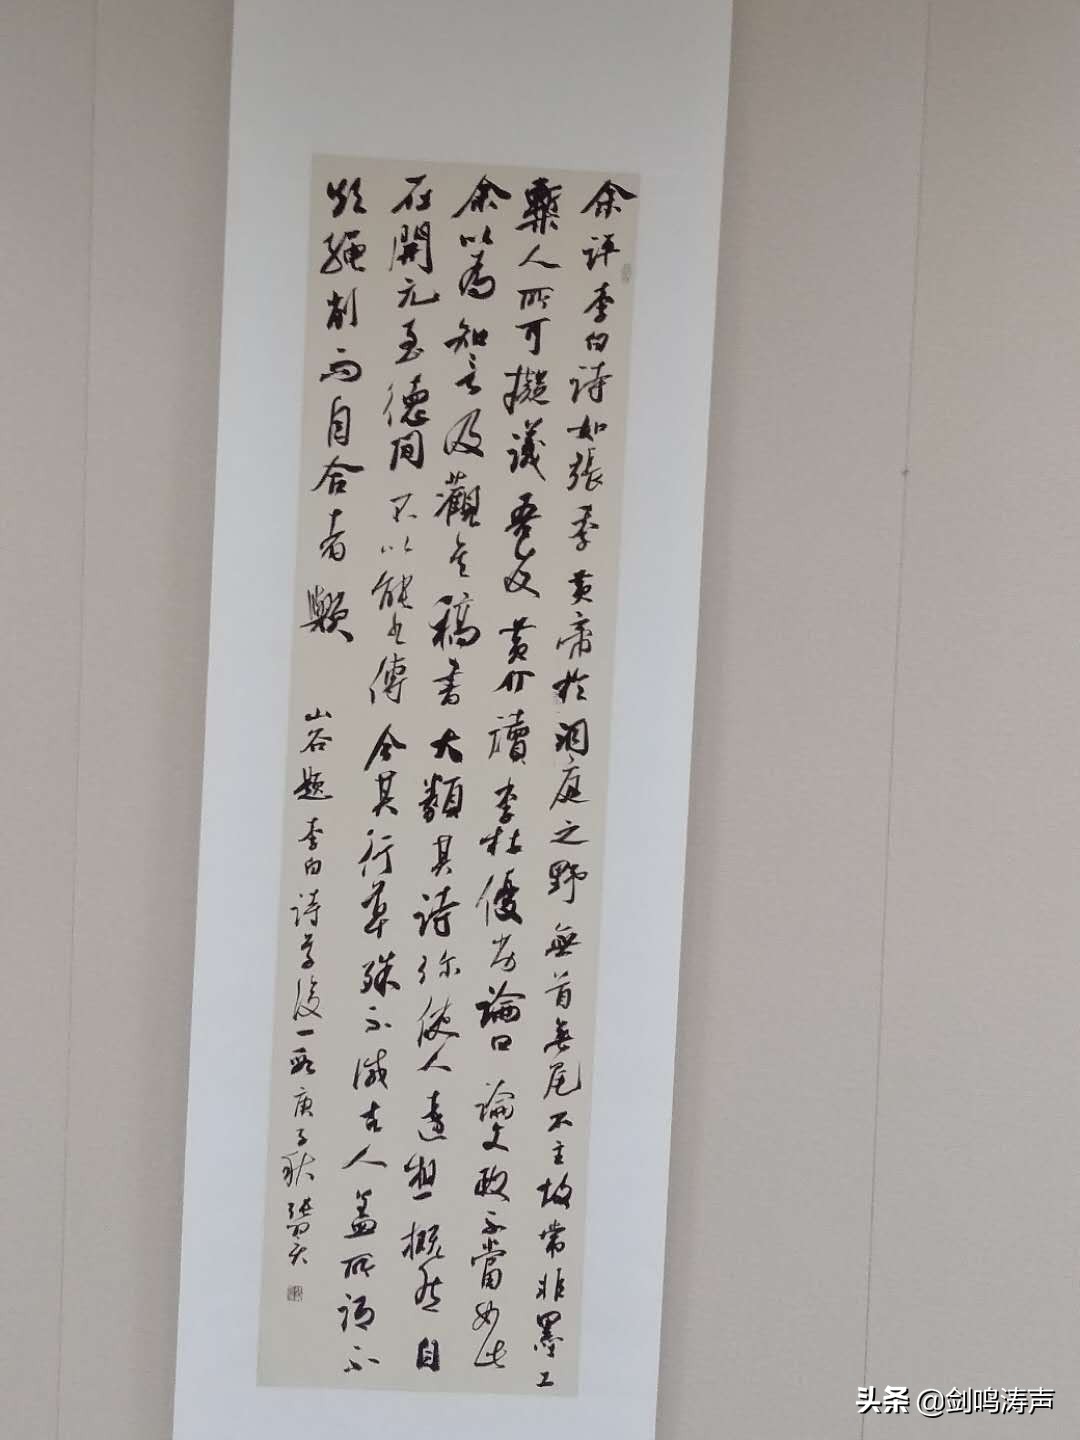 余評李白詩如張樂黄帝於洞庭之野無首無尾不主故常非墨工
槧人所可擬議吾友黄介讀李杜優劣論曰論文政不當如此
余以為知言及觀其稿書大類其詩弥使人遠想概然白
在開元至德間不以能書傳今其行草殊不減古人蓋所謂不
煩繩削而自合者歟
山谷题李白詩草後一段庚子秋張
头条 @剑鸣涛声